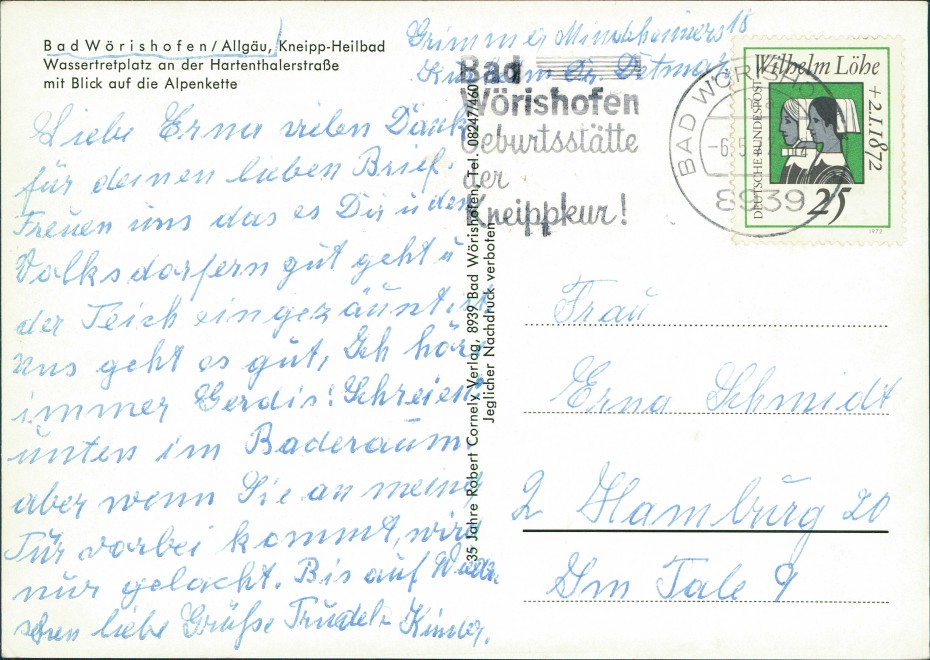 Bad Wörishofen/Allgäu, Kneipp-Heilbad
Wasserfretplatz an der Hartenthalerstraße
mit Blick auf die Alpenkette
Liebe Erna vielen Dank
für deinen lieben Brief.
Freuen uns das es Dir u den
Volksdorfern gut geht u
der Teich eingezäunt ist
uns geht es gut, Ich höre
immer Gerdis: Schreien
unten im Baderaum
aber wenn Sie an meine
Tür vorbei kommt, wird
nur gelacht. Bis auf Wieder
sehen liebe Grüße Trudel
35 Jahre Robert Cornely Verlag, 8939 Bad Wörishofen, Tel. 08247/460
Jeglicher Nachdruck verboten
Grimme
18
Bad
Wörishofen
Geburtsstätte
der
Kneippkur!
BAD WÖRISHO
8939
Wilhelm Löhe
+2.1.1872
DEUTSCHE BUNDESPOST
25
1972
Frau
Erna Schmidt
2 Hamburg 20
Im Tale 9